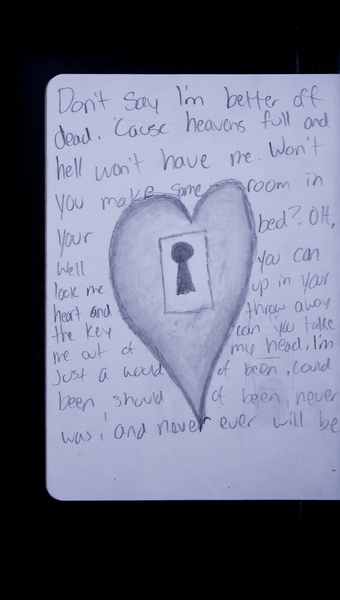 Don't say I'm better off
dead. 'Cause heavens full and
hell won't have me. Won't
you make some room in
your bed? Oh,
well you can
lock me up in your
heart and throw away
the key can you take
me out of my head. I'm
Just a would of been, could
been should of been, never
was, and never ever will be